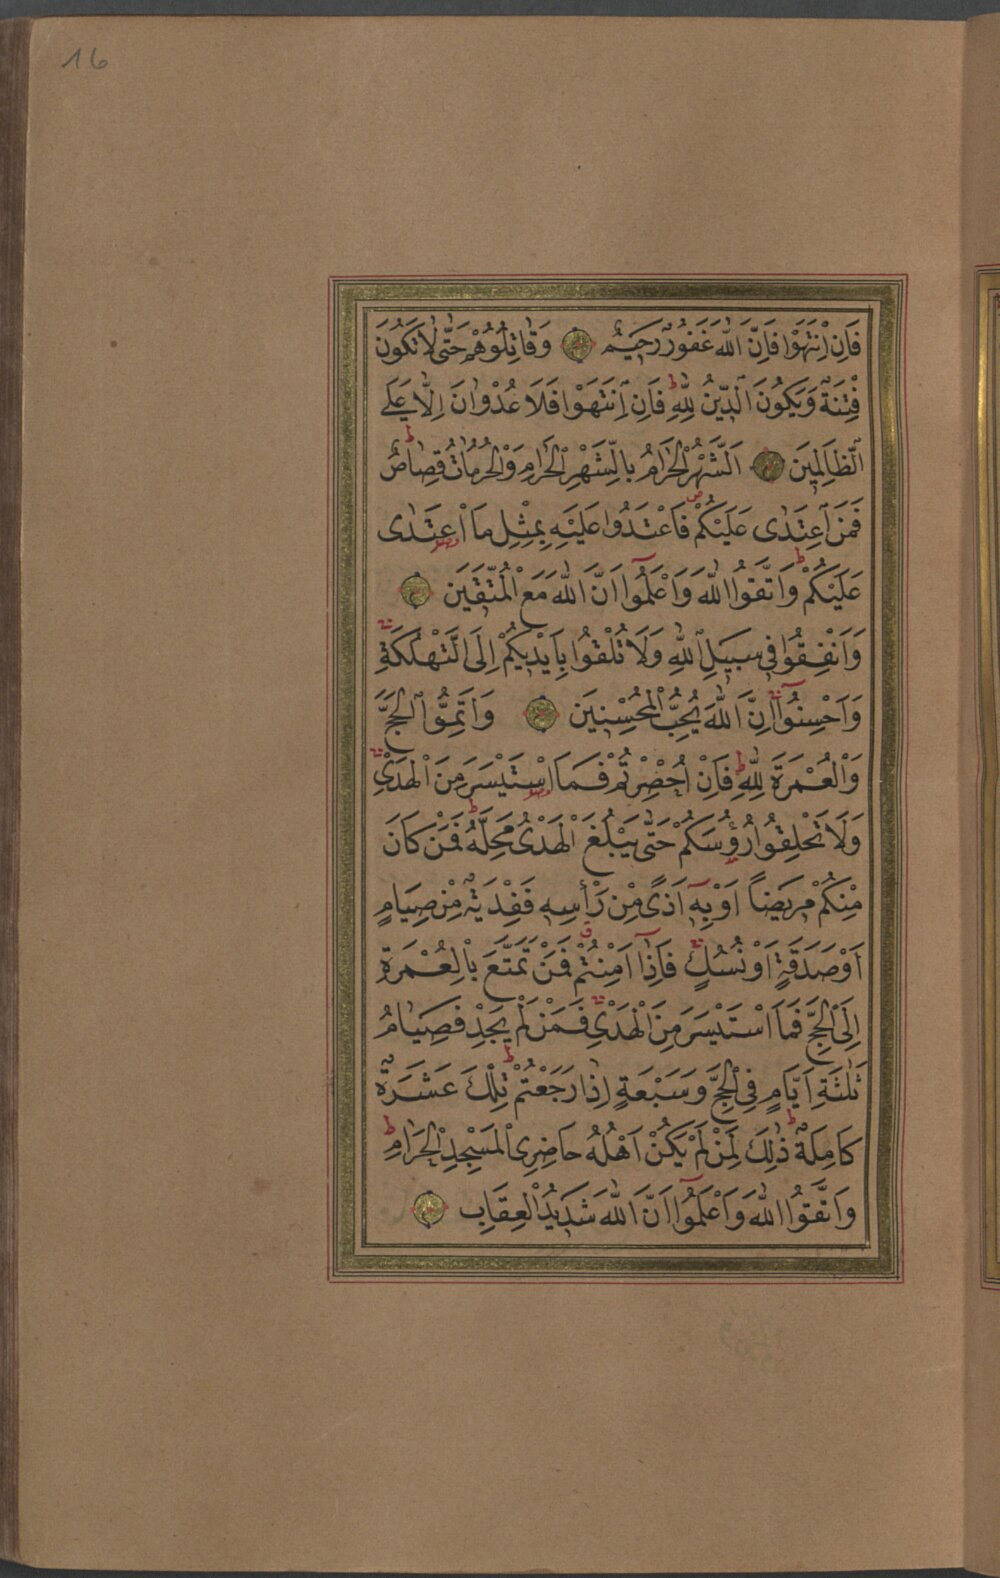 16
فَاِنِ انْتَهَوْا فَاِنَّ اللّٰهَ غَفُورٌ رَحِيمٌ وَقَاتِلُوهُمْ حَتّٰى لَا تَكُونَ
فِتْنَةٌ وَيَكُونَ الدِّينُ لِلّٰهِ فَاِنِ انْتَهَوْا فَلَا عُدْوَانَ اِلَّا عَلَى
الظَّالِمِينَ اَلشَّهْرُ الْحَرَامُ بِالشَّهْرِ الْحَرَامِ وَالْحُرُمَاتُ قِصَاصٌ
فَمَنِ اعْتَدٰى عَلَيْكُمْ فَاعْتَدُوا عَلَيْهِ بِمِثْلِ مَا اعْتَدٰى
عَلَيْكُمْ وَاتَّقُوا اللّٰهَ وَاعْلَمُوا اَنَّ اللّٰهَ مَعَ الْمُتَّقِينَ
وَاَنْفِقُوا فِي سَبِيلِ اللّٰهِ وَلَا تُلْقُوا بِاَيْدِيكُمْ اِلَى التَّهْلُكَةِ
وَاَحْسِنُوا اِنَّ اللّٰهَ يُحِبُّ الْمُحْسِنِينَ وَاَتِمُّوا الْحَجَّ
وَالْعُمْرَةَ لِلّٰهِ فَاِنْ اُحْصِرْتُمْ فَمَا اسْتَيْسَرَ مِنَ الْهَدْيِ
وَلَا تَحْلِقُوا رُؤُسَكُمْ حَتّٰى يَبْلُغَ الْهَدْيُ مَحِلَّهُ فَمَنْ كَانَ
مِنْكُمْ مَرِيضًا اَوْ بِهِ اَذًى مِنْ رَأْسِهِ فَفِدْيَةٌ مِنْ صِيَامٍ
اَوْ صَدَقَةٍ اَوْ نُسُكٍ فَاِذَا اَمِنْتُمْ فَمَنْ تَمَتَّعَ بِالْعُمْرَةِ
اِلَى الْحَجِّ فَمَا اسْتَيْسَرَ مِنَ الْهَدْيِ فَمَنْ لَمْ يَجِدْ فَصِيَامُ
ثَلٰثَةِ اَيَّامٍ فِي الْحَجِّ وَسَبْعَةٍ اِذَا رَجَعْتُمْ تِلْكَ عَشَرَةٌ
كَامِلَةٌ ذٰلِكَ لِمَنْ لَمْ يَكُنْ اَهْلُهُ حَاضِرِي الْمَسْجِدِ الْحَرَامِ
وَاتَّقُوا اللّٰهَ وَاعْلَمُوا اَنَّ اللّٰهَ شَدِيدُ الْعِقَابِ